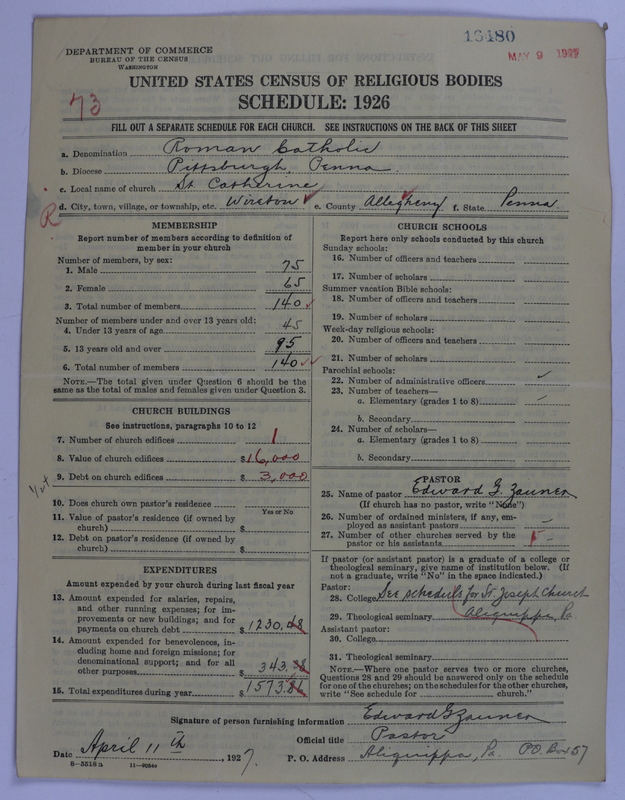 DEPARTMENT OF COMMERCE
BUREAU OF THE CENSUS
WASHINGTON
13180
MAY 9 1927
UNITED STATES CENSUS OF RELIGIOUS BODIES
73
SCHEDULE: 1926
FILL OUT A SEPARATE SCHEDULE FOR EACH CHURCH. SEE INSTRUCTIONS ON THE BACK OF THIS SHEET
a. Denomination Roman Catholic
b. Diocese Pittsburgh, Penna.
c. Local name of church St Catherine
d. City, town, village, or township, etc. Wireton e. County Allegheny f. State Penna
R
MEMBERSHIP
Report number of members according to definition of member in your church
Number of members, by sex:
1. Male 75
2. Female 65
3. Total number of members 140
Number of members under and over 13 years old:
4. Under 13 years of age 45
5. 13 years old and over 95
6. Total number of members 140
NOTE.—The total given under Question 6 should be the
same as the total of males and females given under Question 3.
CHURCH BUILDINGS
See instructions, paragraphs 10 to 12
7. Number of church edifices 1
8. Value of church edifices $16,000
9. Debt on church edifices $3,000
10. Does church own pastor's residence
Yes or No
11. Value of pastor's residence (if owned by
church) $
12. Debt on pastor's residence (if owned by
church) $
EXPENDITURES
Amount expended by your church during last fiscal year
13. Amount expended for salaries, repairs,
and other running expenses; for im-
provements or new buildings; and for
payments on church debt $1230.48
14. Amount expended for benevolences, in-
cluding home and foreign missions; for
denominational support; and for all
other purposes $343.38
15. Total expenditures during year $1573.86
CHURCH SCHOOLS
Report here only schools conducted by this church
Sunday schools:
16. Number of officers and teachers
17. Number of scholars
Summer vacation Bible schools:
18. Number of officers and teachers
19. Number of scholars
Week-day religious schools:
20. Number of officers and teachers
21. Number of scholars
Parochial schools:
22. Number of administrative officers
23. Number of teachers—
a. Elementary (grades 1 to 8)
b. Secondary
24. Number of scholars—
a. Elementary (grades 1 to 8)
b. Secondary
PASTOR
25. Name of pastor Edward G. Zauner
(If church has no pastor, write "None")
26. Number of ordained ministers, if any, em-
ployed as assistant pastors —
27. Number of other churches served by the
pastor or his assistants 1
If pastor (or assistant pastor) is a graduate of a college or
theological seminary, give name of institution below. (If
not a graduate, write "No" in the space indicated.)
Pastor:
28. College See schedule for St. Joseph Church
29. Theological seminary Aliquippa, Pa.
Assistant pastor:
30. College
31. Theological seminary
NOTE.—Where one pastor serves two or more churches,
Questions 28 and 29 should be answered only on the schedule
for one of the churches; on the schedules for the other churches,
write "See schedule for ______ church."
Signature of person furnishing information Edward G Zauner
Official title Pastor
Date April 11th, 1927. P. O. Address Aliquippa, Pa. P.O. Box 57
8—5518a 11—9054a